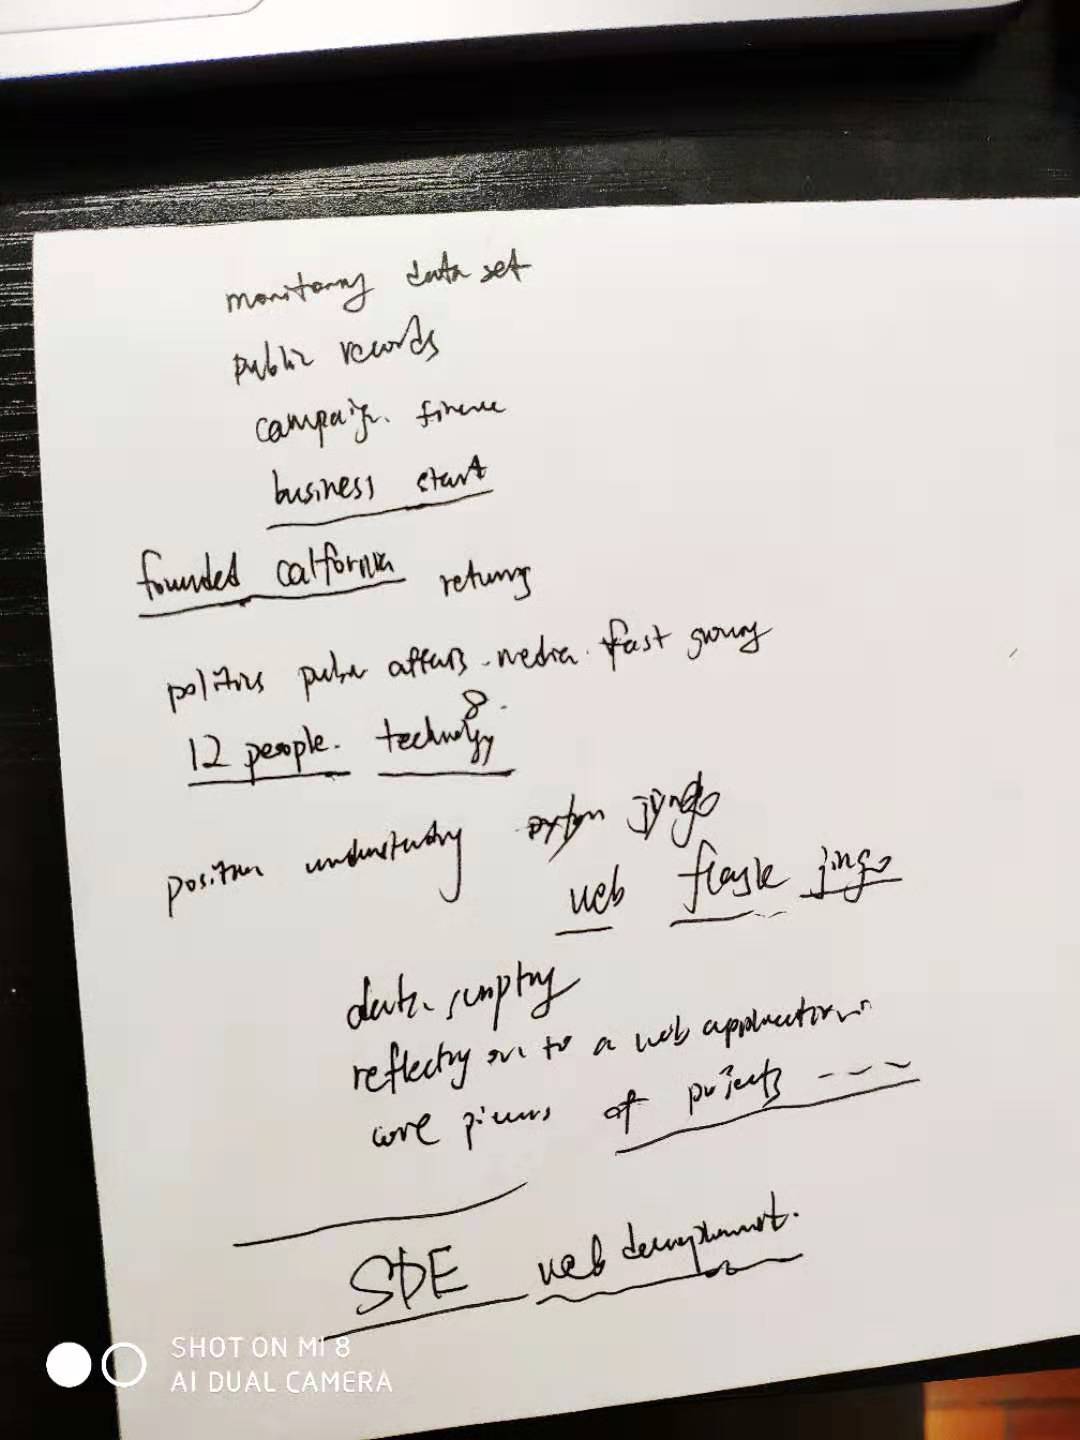 monitoring data set
public records
campaign. finance
business start
founded california returns
politics public affairs. media. fast growing
8.
12 people. technology
position understanding python
web flask jingo
data. scripting
reflecting on to a web application
core pieces of projects ---
SDE web development.
SHOT ON MI 8
AI DUAL CAMERA